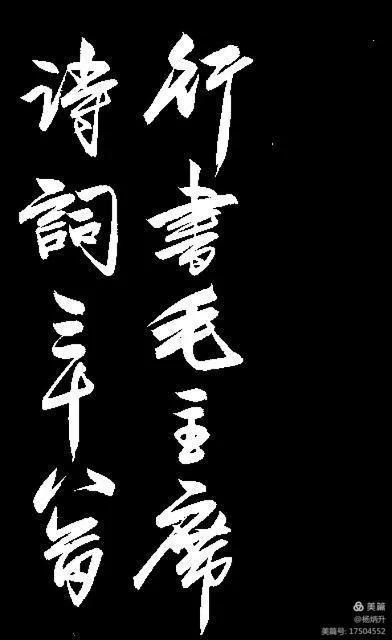 行書毛主席
詩詞三十八首
美篇
@杨炳升
美篇号: 17504552